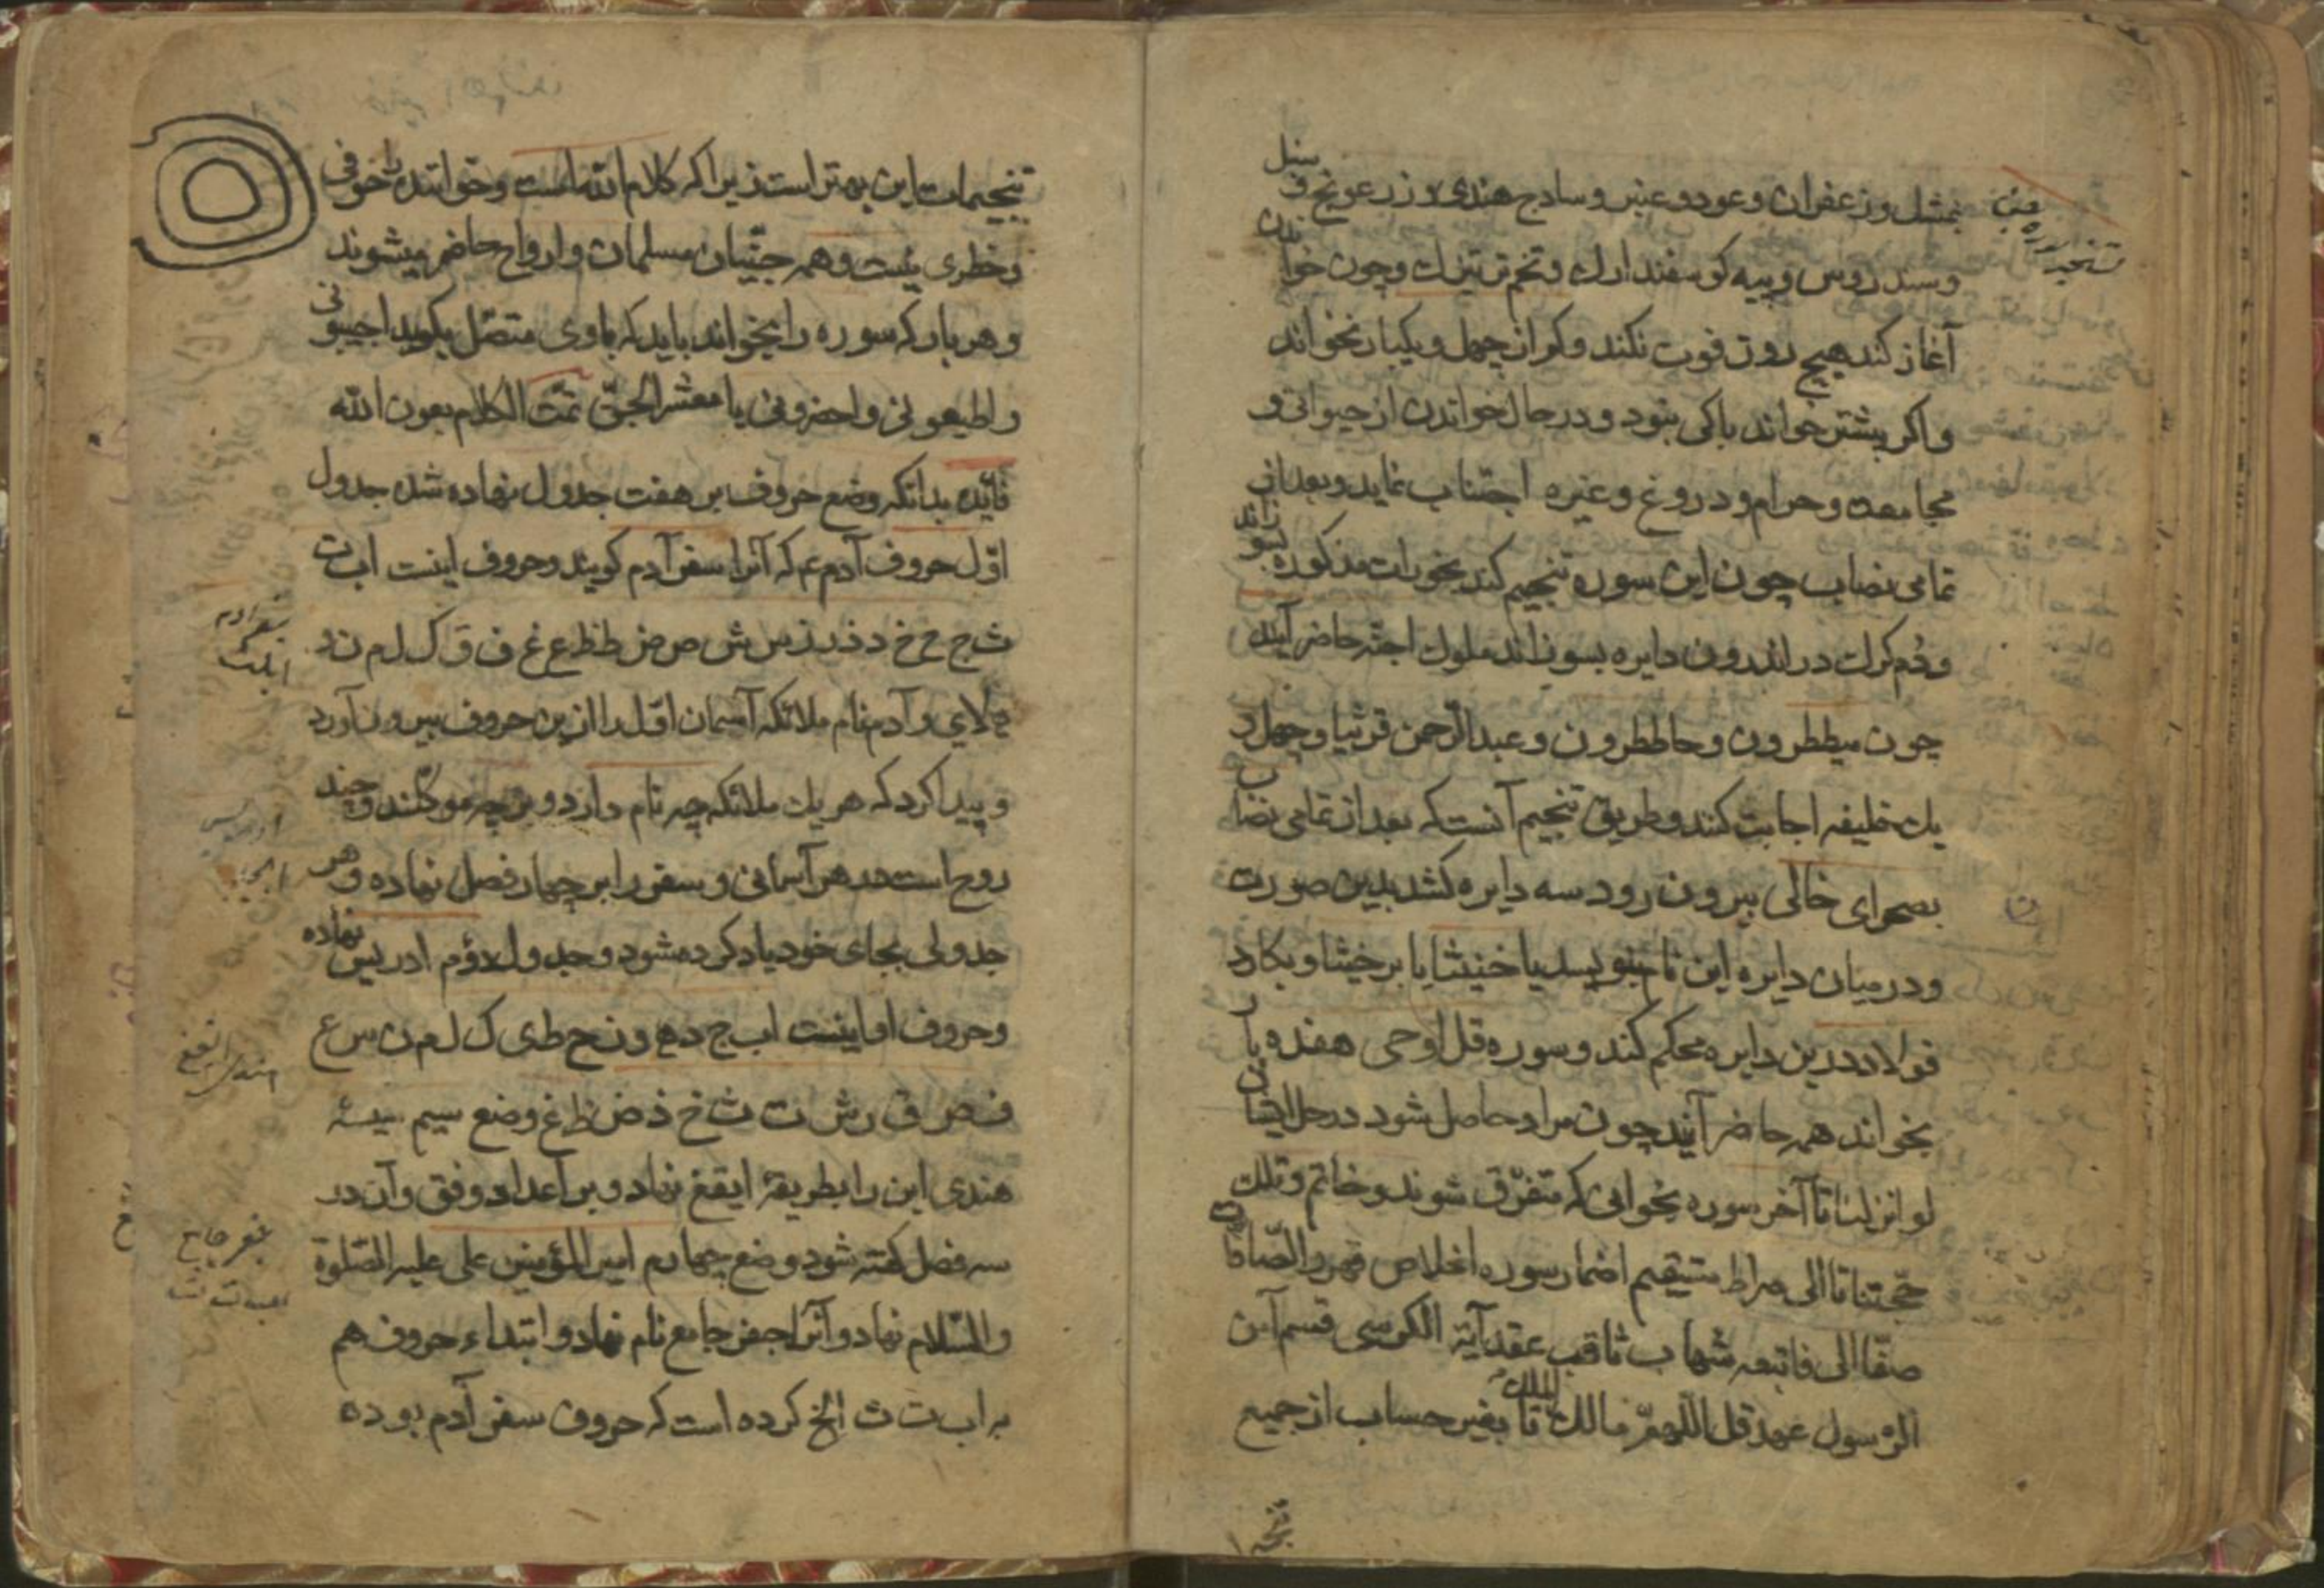 بمثل وزعفران وعود و عنبر و سادج هندی و زرعونج و سنبل
وسندروس وپیه کوسفندارك وتخم تر تیزك وچون خواندن
آغاز کند هیچ روز فوت نکند وکر از چهل ویکبار نخواند
واکر بیشتر خواند باکی نبود و در حال خواندن از حیوانی و
مجامعت وحرام و دروغ وغیره اجتناب نماید وبعد از
تمامی نصاب چون این سوره تنجیم کند بخورات مذکوره بسوزاند
ودم کرك در اندرون دایره بسوزاند ملوك اجنّه حاضر آیند
چون میططرون وحاططرون و عبدالرّحمن قرثیا وچهل و
یك خلیفه اجابت کنند وطریق تنجیم آنست که بعد از تمامی نصاب
بصحرای خالی بیرون رود سه دایره کشد بدین صورت
ودر میان دایره این نام بنویسد یا خنیثا یا برخیثا وبکارد
فولاد درین دایره محکم کند و سوره قل اوحی هفده بار
بخواند همه حاضر آیند چون مراد حاصل شود در حل ایشان
لو انزلنا تا آخر سوره بخوانی که متفرّق شوند و خاتم و تلك
حجّتنا تا الی صراط مستقیم اضمار سوره اخلاص قهر والصّافات
صفّا الی فاتبعه شهاب ثاقب عقد آیة الکرسی قسم آمن
الرّسول عهد قل اللّهمّ مالك الملك تا بغیر حساب از جمیع
تنجیمات این بهتر است زیرا که کلام اللّه است وخواننده را خوفی
وخطری نیست وهمه جنّیان مسلمان وارواح حاضر میشوند
وهر بار که سوره را بخواند باید که باوی متصّل بکوید اجیبونی
واطیعونی واحضرونی یا معشر الجنّ تمّت الکلام بعون اللّه
فائده بدانکه وضع حروف بر هفت جدول نهاده شده جدول
اوّل حروف آدم ع م که آنرا سفر آدم کویند وحروف اینست ا ب ت
ث ج ح خ د ذ ر ز س ش ص ض ط ظ ع غ ف ق ك ل م ن و
ه لا ی و آدم نام ملائکه آسمان اوّل را ازین حروف بیرون آورد
و پیدا کرد که هر یك ملائکه چه نام دارد و بر چه موکّلند و چند
روح است در هر آسمانی و سفر را بر چهار فصل نهاده و هر
جدولی بجای خود یاد کرده شود وجدول دوّم ادریس نهاده
وحروف او اینست ا ب ج د ه و ز ح ط ی ك ل م ن س ع
ف ص ق ر ش ت ث خ ذ ض ظ غ وضع سیم
هندی این را بطریقه ایقغ نهاد و بر اعداد وفق وآن در
سه فصل کفته شود وضع چهارم امیر المؤمنین علی علیه الصّلوة
والسّلام نهاد و آنرا جفر جامع نام نهاد و ابتداء حروف هم
به ا ب ت ث الخ کرده است که حروف سفر آدم بوده
سفر آدم
ادریس
جفر جامع